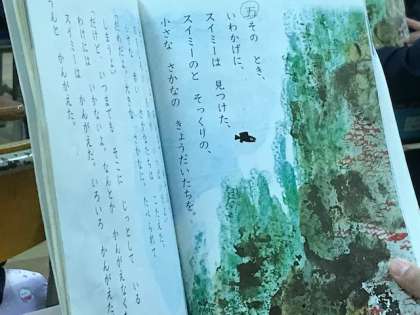 五 その とき、
いわかげに、
スイミーは 見つけた、
スイミーのと そっくりの、
小さな さかなの きょうだいたちを。
たべられて
しまうよ。」
「だけど、いつまでも そこに じっとして いる
わけには いかないよ。なんとか かんがえなく
スイミーは かんがえた。いろいろ かんがえた。
うんと かんがえた。